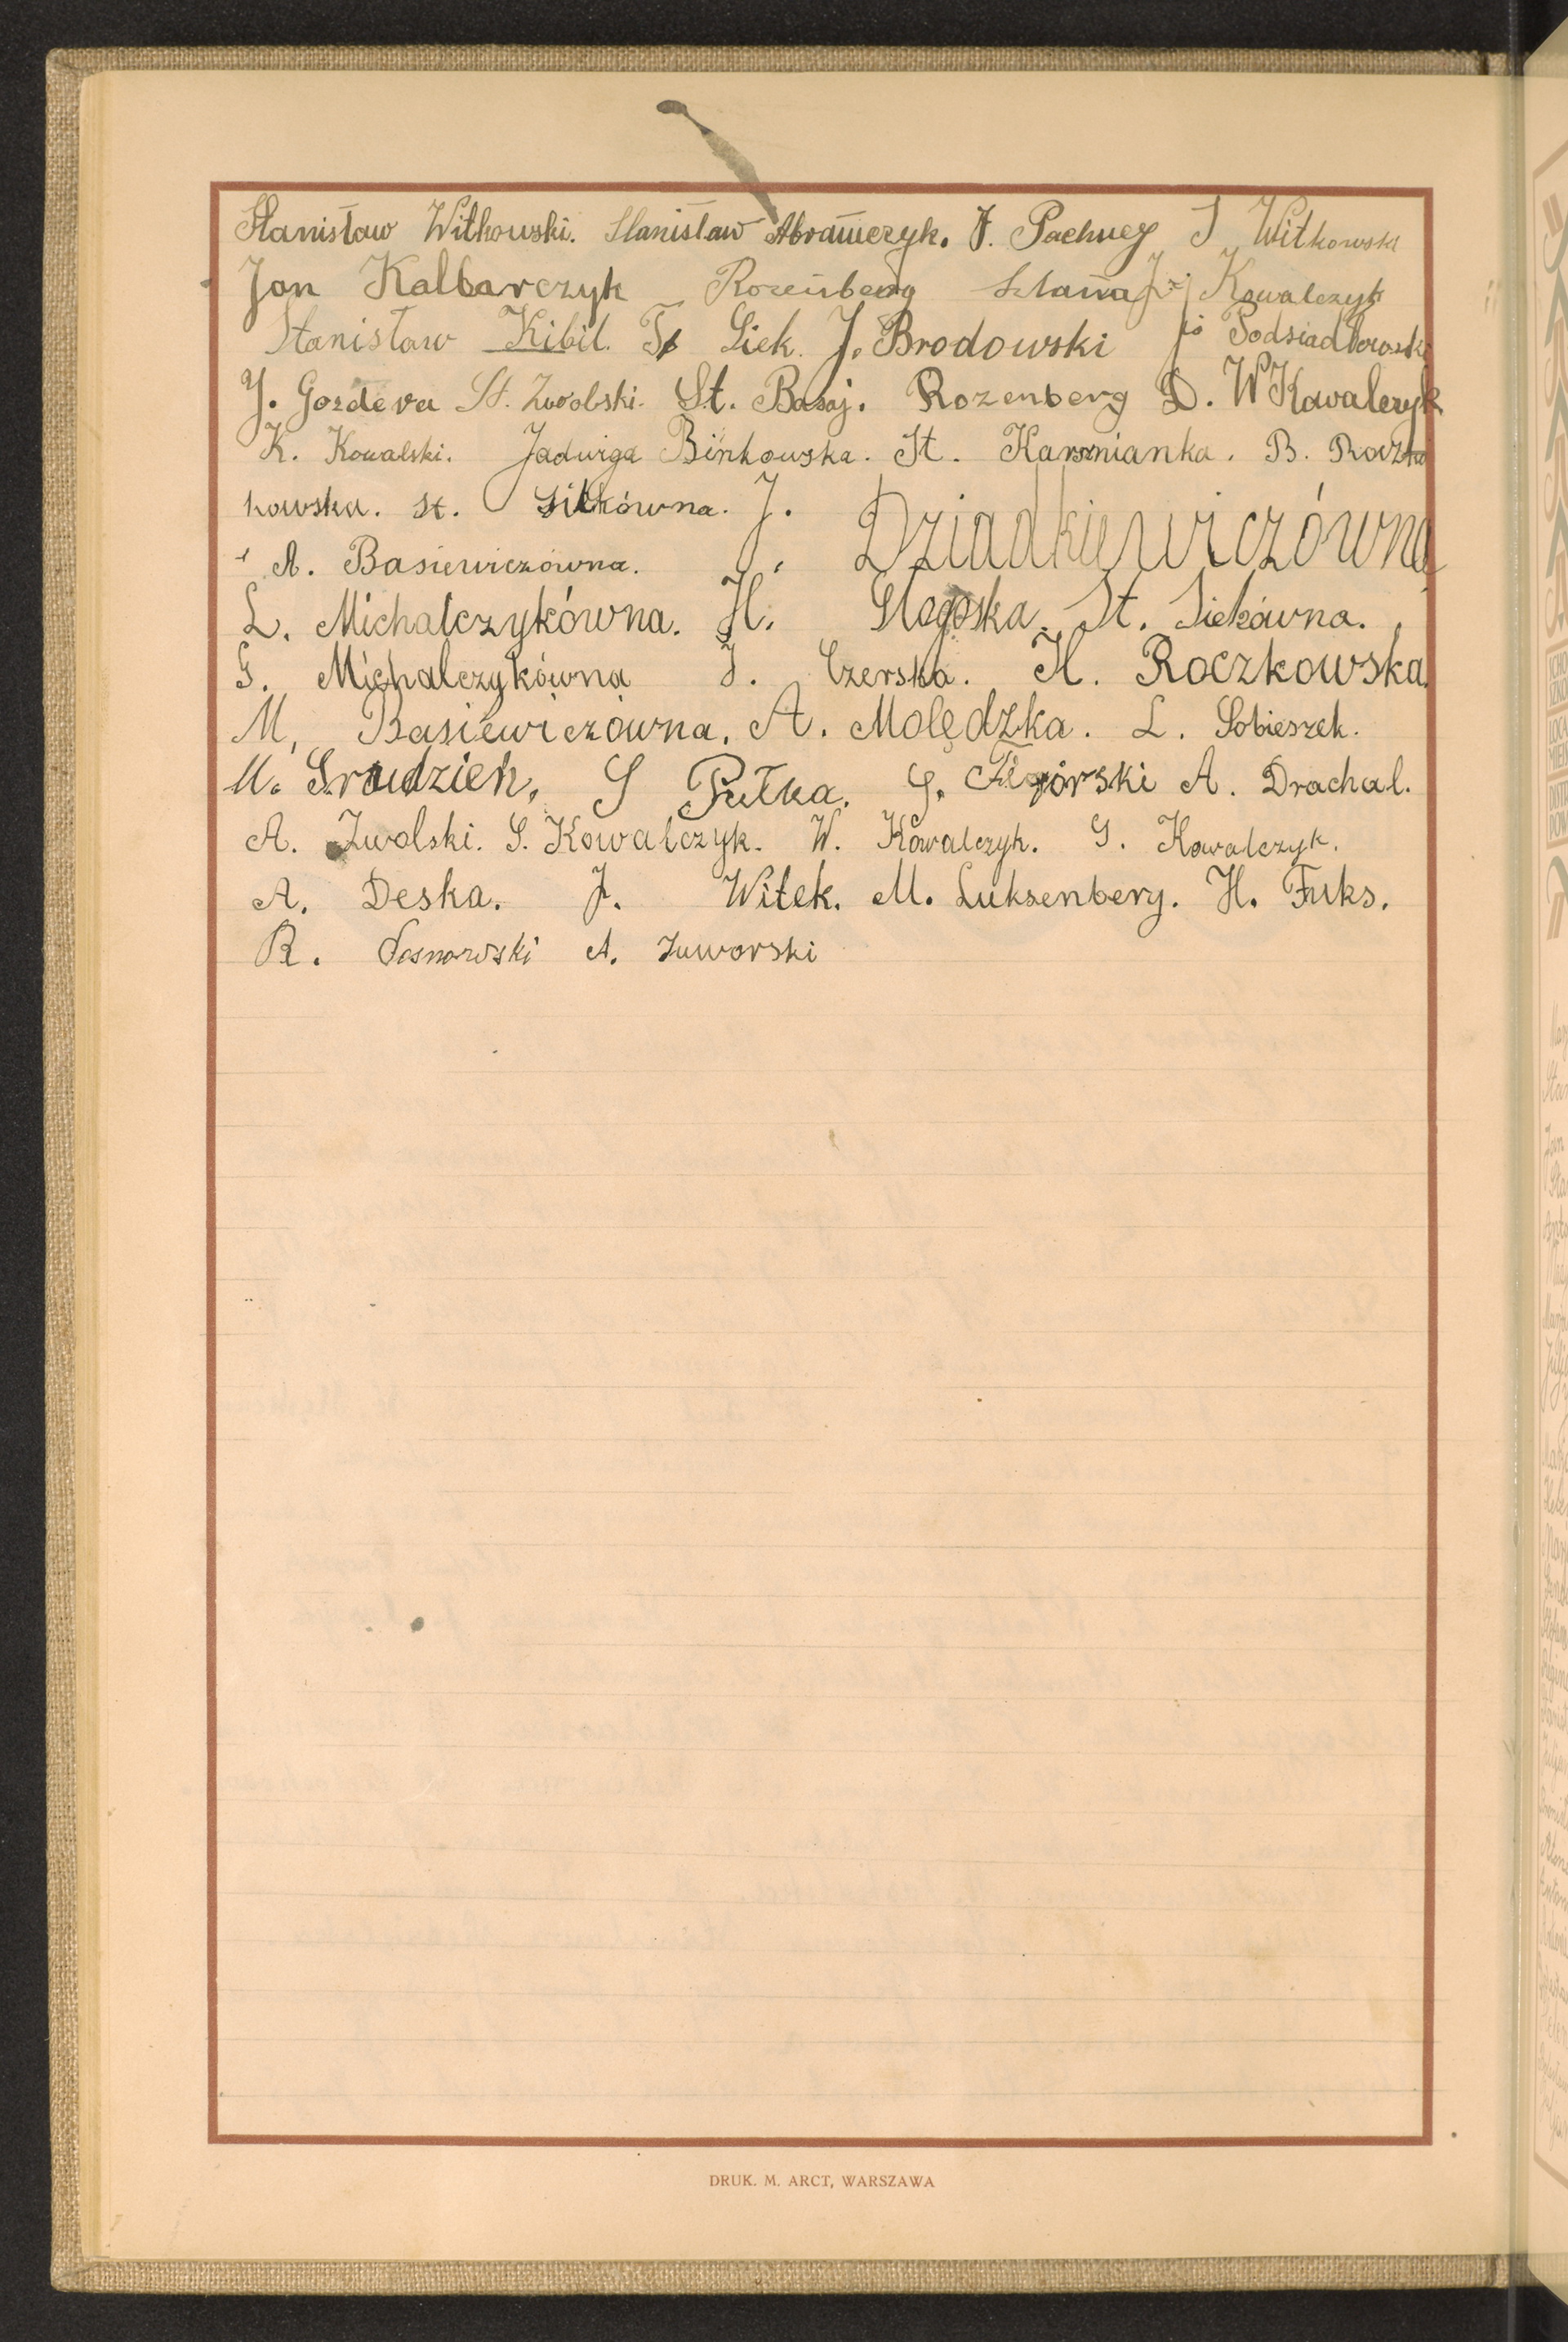 Stanisław Witkowski. Stanisław Abramczyk. F. Pachucy J Witkowska
Jan Kalbarczyk Rozenberg Szlama J. Kowalczyk
Stanisław Kibil. T. Siek. J. Brodowski Podsiadłowski
J. Gozdera St. Zwolski. St. Basaj. Rozenberg D. W Kowalczyk
K. Kowalski. Jadwiga Binkowska. St. Karznianka. B. Rocz
kowska. St. Sitkówna. J. Dziadkiewiczówna
A. Basiewiczówna.
L. Michalczykówna. H. St. Siekówna.
G. Michalczykówna J. Czerska. H. Roczkowska.
M. Basiewiczówna. A. Molędzka. L. Sobieszek.
M. Grudzień. S Pułka. G. Figórski A. Drachal.
A. Zwolski. S. Kowalczyk. W. Kowalczyk. G. Kowalczyk.
A. Deska. J. Witek. M. Luksenberg. H. Fuks.
R. Sosnowski A. Jaworski
DRUK. M. ARCT, WARSZAWA